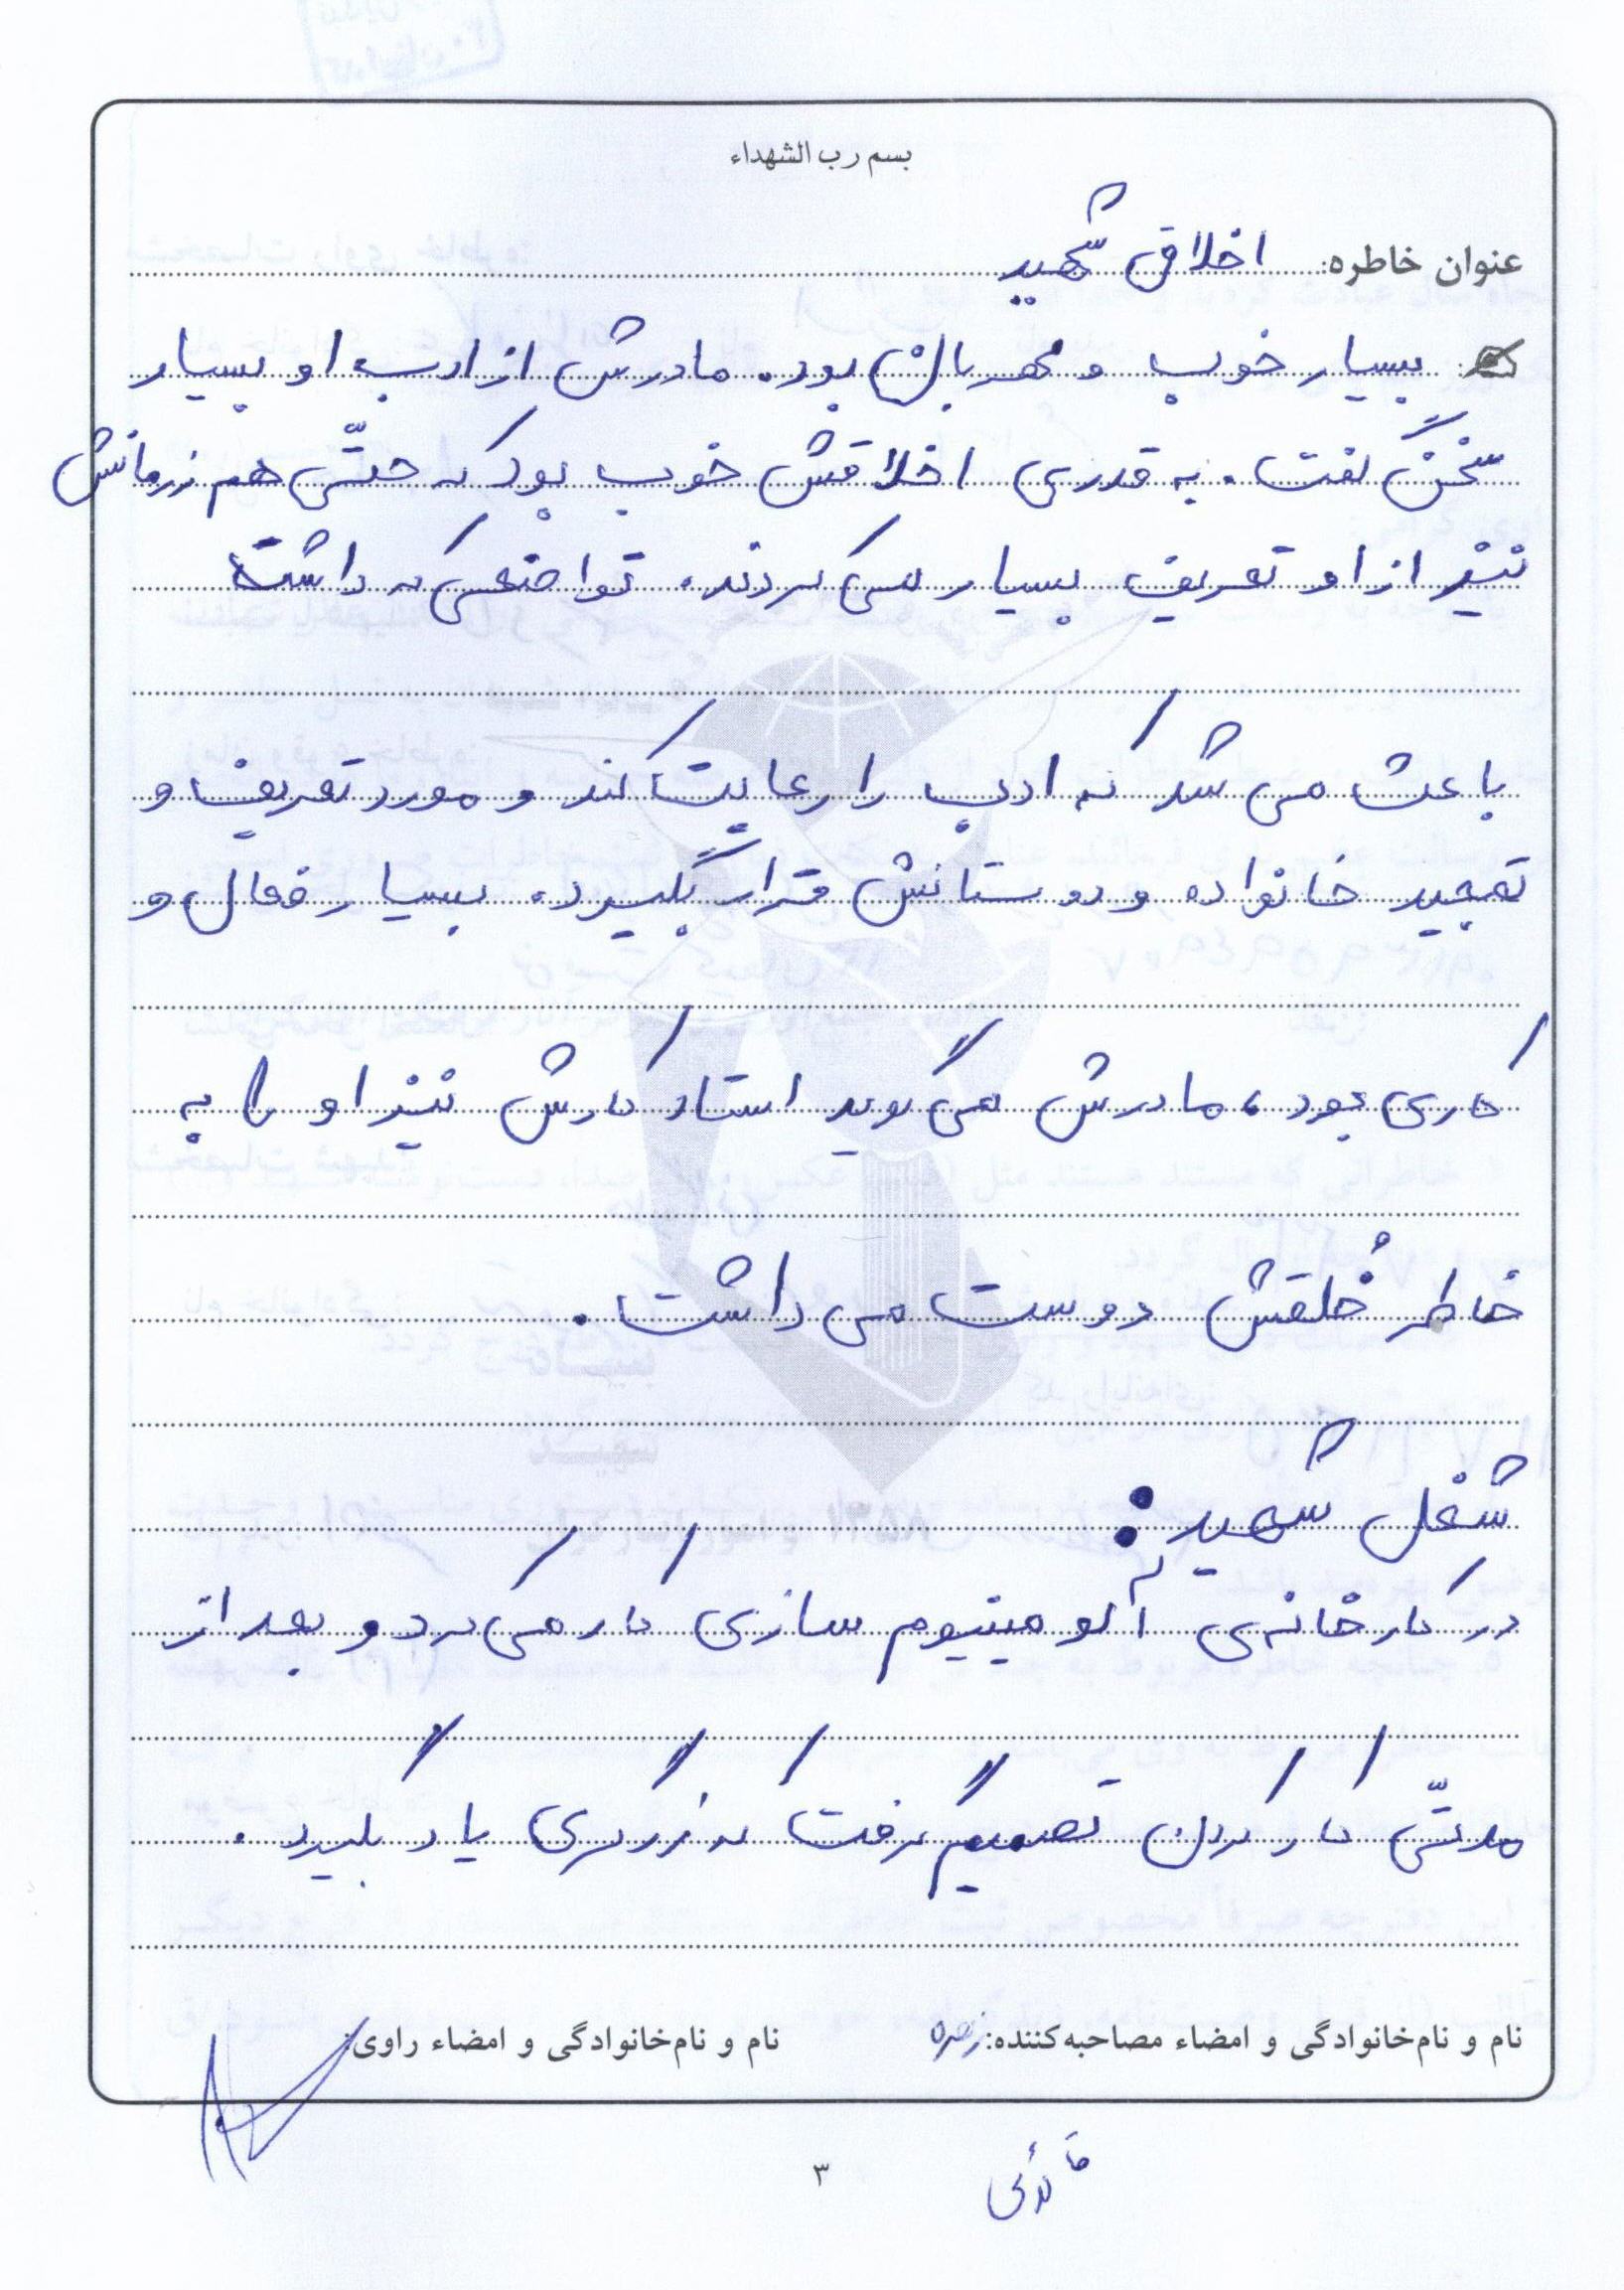 بسم رب الشهداء
عنوان خاطره: اخلاق شهید
بسیار خوب و مهربان بود. مادرش از ادب او بسیار
سخن گفت. به قدری اخلاقش خوب بود که حتّی هم‌رزمانش
نیز از او تعریف بسیار می‌کردند. تواضعی که داشت
باعث می‌شد که ادب را رعایت کند و مورد تعریف و
تمجید خانواده و دوستانش قرار گیرد. بسیار فعال و
کاری بود، مادرش می‌گوید استاد کارش نیز او را به
خاطر خُلقش دوست می‌داشت.
شغل شهید:
در کارخانه‌ی آلومینیوم سازی کار می‌کرد و بعد از
مدتّی کار کردن تصمیم گرفت که زرگری یاد بگیرد.
نام و نام‌خانوادگی و امضاء مصاحبه‌کننده: زهره
نام و نام‌خانوادگی و امضاء راوی:
۳